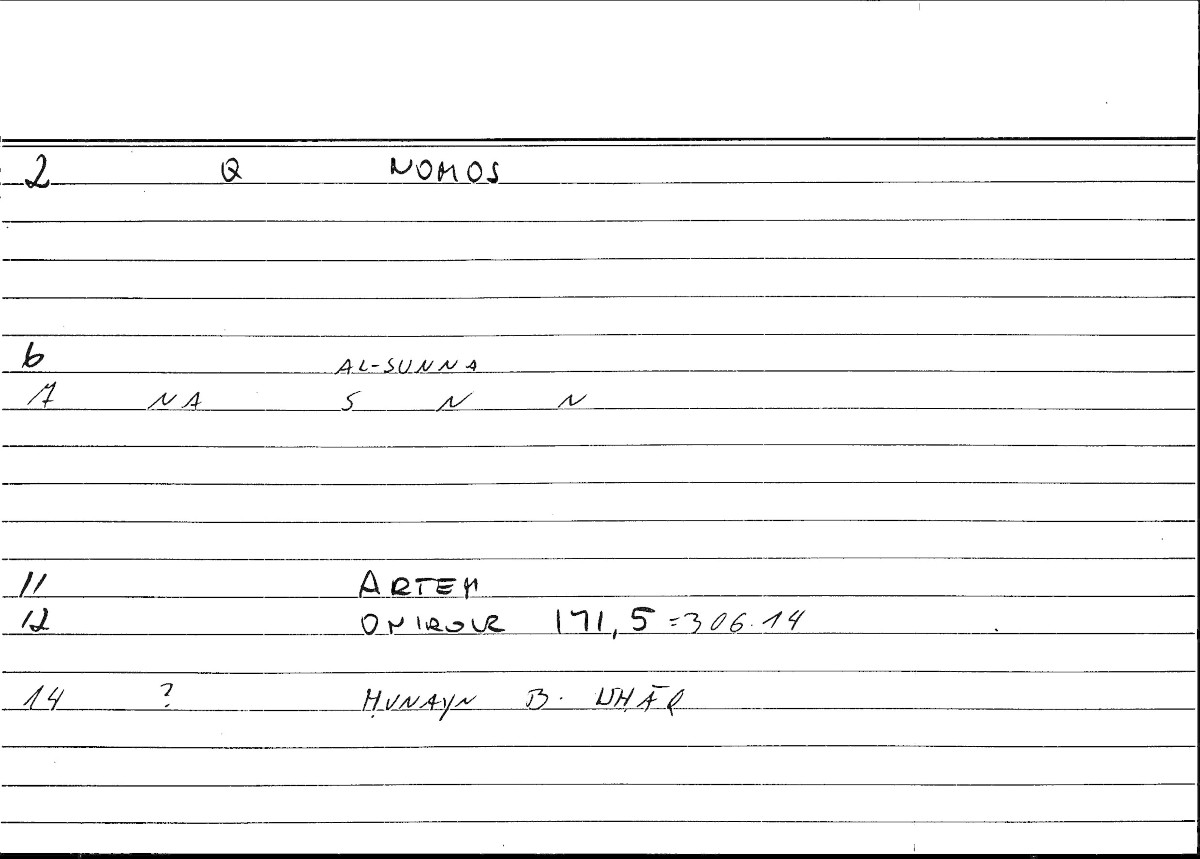 2 Q NOMOS
6 AL-SUNNA
7 NA S N N
11 ARTEM
12 ONIROCR 171,5 = 306.14
14 ? ḤUNAYN B. ISḤĀQ